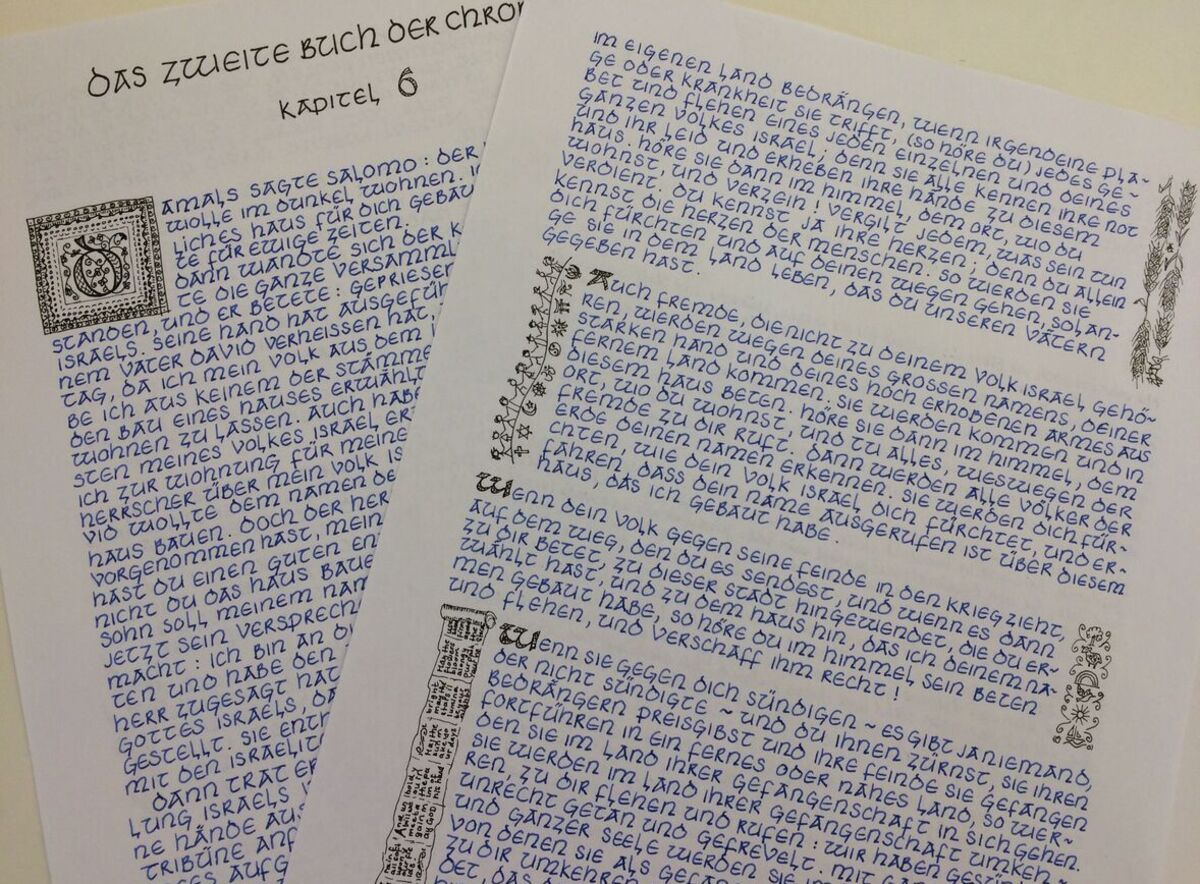 DAS ZWEITE BUCH DER CHRON
KAPITEL 6
DAMALS SAGTE SALOMO: DER
WOLLE IM DUNKEL WOHNEN.
LICHES HAUS FÜR DICH GEBAU
TE FÜR EWIGE ZEITEN.
DANN WANDTE SICH DER K
TE DIE GANZE VERSAMML
STANDEN, UND ER BETETE: GEPRIESEN
ISRAELS. SEINE HAND HAT AUSGEFÜH
NEM VATER DAVID VERHEISSEN HAT,
TAG, DA ICH MEIN VOLK AUS DEM
BE ICH AUS KEINEM DER STÄMME
DEN BAU EINES HAUSES ERWÄHLT
WOHNEN ZU LASSEN. AUCH HABE
STEN MEINES VOLKES ISRAEL ER
ICH ZUR WOHNUNG FÜR MEINE
HERRSCHER ÜBER MEIN VOLK IS
VID WOLLTE DEM NAMEN DE
HAUS BAUEN. DOCH DER HER
VORGENOMMEN HAST, MEIN
HAST DU EINEN GUTEN EN
NICHT DU DAS HAUS BAUE
SOHN SOLL MEINEM NAM
JETZT SEIN VERSPRECH
MACHT: ICH BIN AN D
TEN UND HABE DEN
HERR ZUGESAGT HAT
GOTTES ISRAELS, DA
GESTELLT. SIE ENTH
MIT DEN ISRAELIT
DANN TRAT ER
LUNG ISRAELS
NE HÄNDE AUS
TRIBÜNE ANF
AUFG
IM EIGENEN LAND BEDRÄNGEN, WENN IRGENDEINE PLA~
GE ODER KRANKHEIT SIE TRIFFT, (SO HÖRE DU) JEDES GE~
BET UND FLEHEN EINES JEDEN EINZELNEN UND DEINES
GANZEN VOLKES ISRAEL; DENN SIE ALLE KENNEN IHRE NOT
UND IHR LEID UND ERHEBEN IHRE HÄNDE ZU DIESEM
HAUS. HÖRE SIE DANN IM HIMMEL, DEM ORT, WO DU
WOHNST, UND VERZEIH! VERGILT JEDEM, WAS SEIN TUN
VERDIENT. DU KENNST JA IHRE HERZEN; DENN DU ALLEIN
KENNST DIE HERZEN DER MENSCHEN. SO WERDEN SIE
DICH FÜRCHTEN UND AUF DEINEN WEGEN GEHEN, SOLAN~
GE SIE IN DEM LAND LEBEN, DAS DU UNSEREN VÄTERN
GEGEBEN HAST.
AUCH FREMDE, DIE NICHT ZU DEINEM VOLK ISRAEL GEHÖ~
REN, WERDEN WEGEN DEINES GROSSEN NAMENS, DEINER
STARKEN HAND UND DEINES HOCH ERHOBENEN ARMES AUS
FERNEM LAND KOMMEN. SIE WERDEN KOMMEN UND IN
DIESEM HAUS BETEN. HÖRE SIE DANN IM HIMMEL, DEM
ORT, WO DU WOHNST, UND TU ALLES, WESWEGEN DER
FREMDE ZU DIR RUFT. DANN WERDEN ALLE VÖLKER DER
ERDE DEINEN NAMEN ERKENNEN. SIE WERDEN DICH FÜR~
CHTEN, WIE DEIN VOLK ISRAEL DICH FÜRCHTET, UND ER~
FAHREN, DASS DEIN NAME AUSGERUFEN IST ÜBER DIESEM
HAUS, DAS ICH GEBAUT HABE.
WENN DEIN VOLK GEGEN SEINE FEINDE IN DEN KRIEG ZIEHT,
AUF DEM WEG, DEN DU ES SENDEST, UND WENN ES DANN
ZU DIR BETET, ZU DIESER STADT HINGEWENDET, DIE DU ER~
WÄHLT HAST, UND ZU DEM HAUS HIN, DAS ICH DEINEM NA~
MEN GEBAUT HABE, SO HÖRE DU IM HIMMEL SEIN BETEN
UND FLEHEN, UND VERSCHAFF IHM RECHT!
WENN SIE GEGEN DICH SÜNDIGEN ~ ES GIBT JA NIEMAND,
DER NICHT SÜNDIGTE ~ UND DU IHNEN ZÜRNST, SIE IHREN
BEDRÄNGERN PREISGIBST UND IHRE FEINDE SIE GEFANGEN
FORTFÜHREN IN EIN FERNES ODER NAHES LAND, SO WER~
DEN SIE IM LAND IHRER GEFANGENSCHAFT IN SICH GEHEN.
SIE WERDEN IM LAND IHRER GEFANGENSCHAFT UMKEH~
REN, ZU DIR FLEHEN UND RUFEN: WIR HABEN GESÜN
UNRECHT GETAN UND GEFREVELT. MIT GA
UND GANZER SEELE WERDEN SIE
VON DENEN SIE ALS GEFAN
ZU DIR UMKEHREN
DET, DAS D